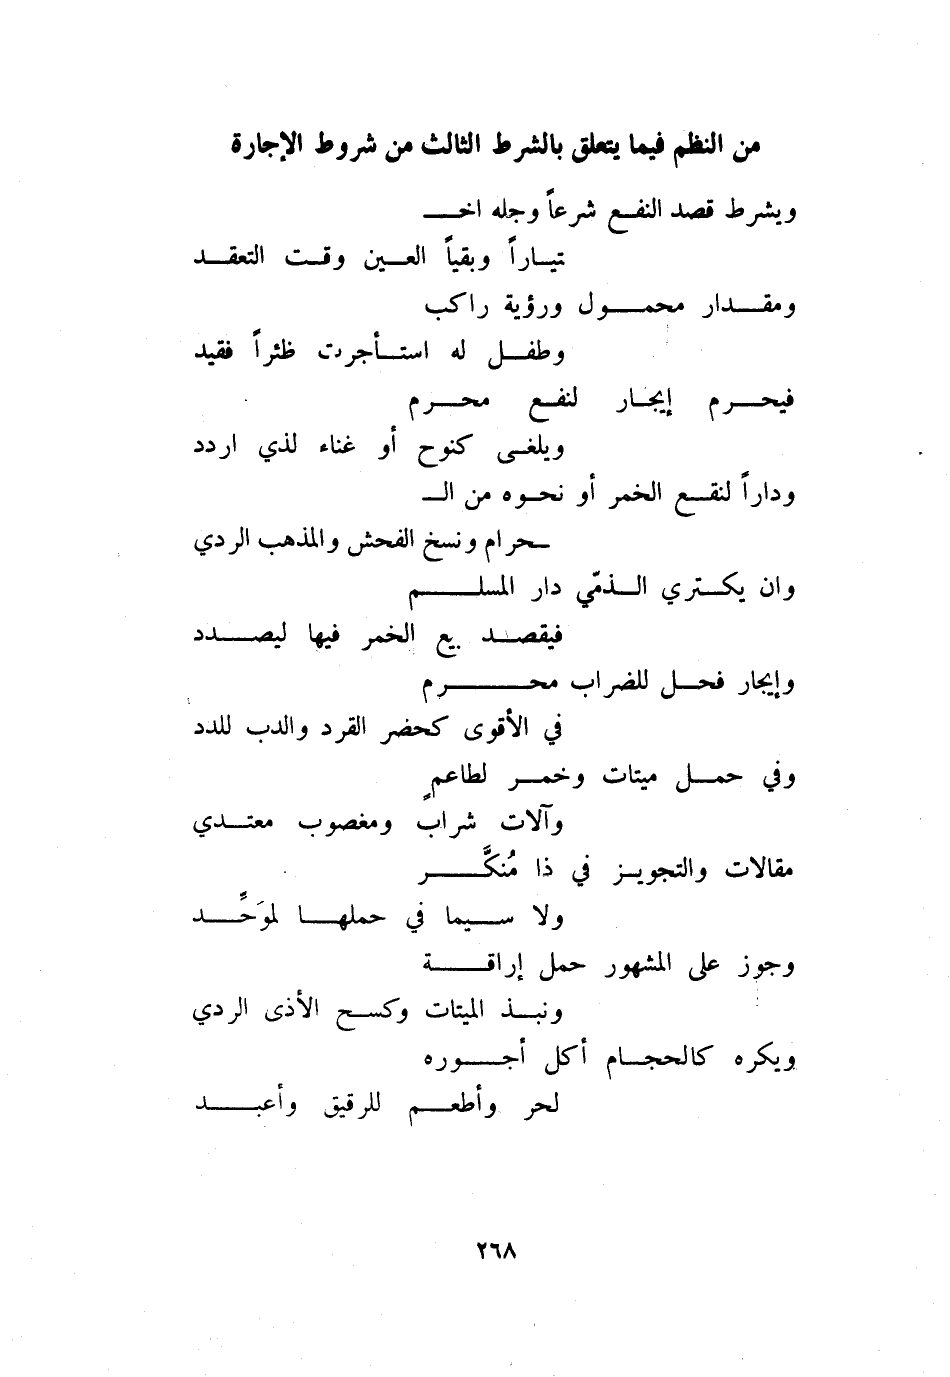 من النظم فيما يتعلق بالشرط الثالث من شروط الإجارة
ويشرط قصد النفع شرعاً وجله اخـ
تياراً وبقياً العين وقت التعقد
ومقدار محمول ورؤية راكب
وطفل له استأجرت ظئراً فقيد
فيحرم إيجار لنفع محرم
ويلغى كنوح أو غناء لذي اردد
وداراً لنقع الخمر أو نحوه من الـ
ـحرام ونسخ الفحش والمذهب الردي
وان يكتري الذمّي دار المسلم
فيقصد بيع الخمر فيها ليصدد
وإيجار فحل للضراب محرم
في الأقوى كحضر القرد والدب للدد
وفي حمل ميتات وخمر لطاعمٍ
وآلات شراب ومغصوب معتدي
مقالات والتجويز في ذا مُنكَّر
ولا سيما في حملها لموَحِّد
وجوز على المشهور حمل إراقة
ونبذ الميتات وكسح الأذى الردي
ويكره كالحجام أكل أجوره
لحر وأطعم للرقيق وأعبد
٢٦٨